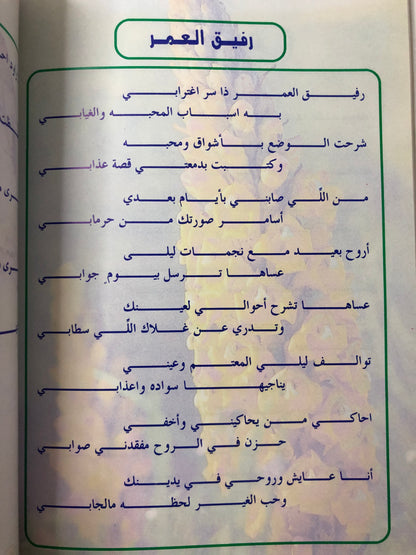 رفيق العمر
رفيق العمر ذا سر اغترابي
به اسباب المحبه والغيابي
شرحت الوضع بأشواق ومحبه
وكتبت بدمعتي قصة عذابي
من اللّي صابني بأيام بعدي
أسامر صورتك من حرمابي
أروح بعيد مع نجمات ليلى
عساها ترسل بيوم جوابي
عساها تشرح أحوالي لعينك
وتدري عن غلاك اللّي سطابي
توالف ليلي المعتم وعيني
يناجيها سواده واعذابي
احاكي من يحاكيني وأخفي
حزن في الروح مفقدني صوابي
أنا عايش وروحي في يدينك
وحب الغير لحظه مالجابي